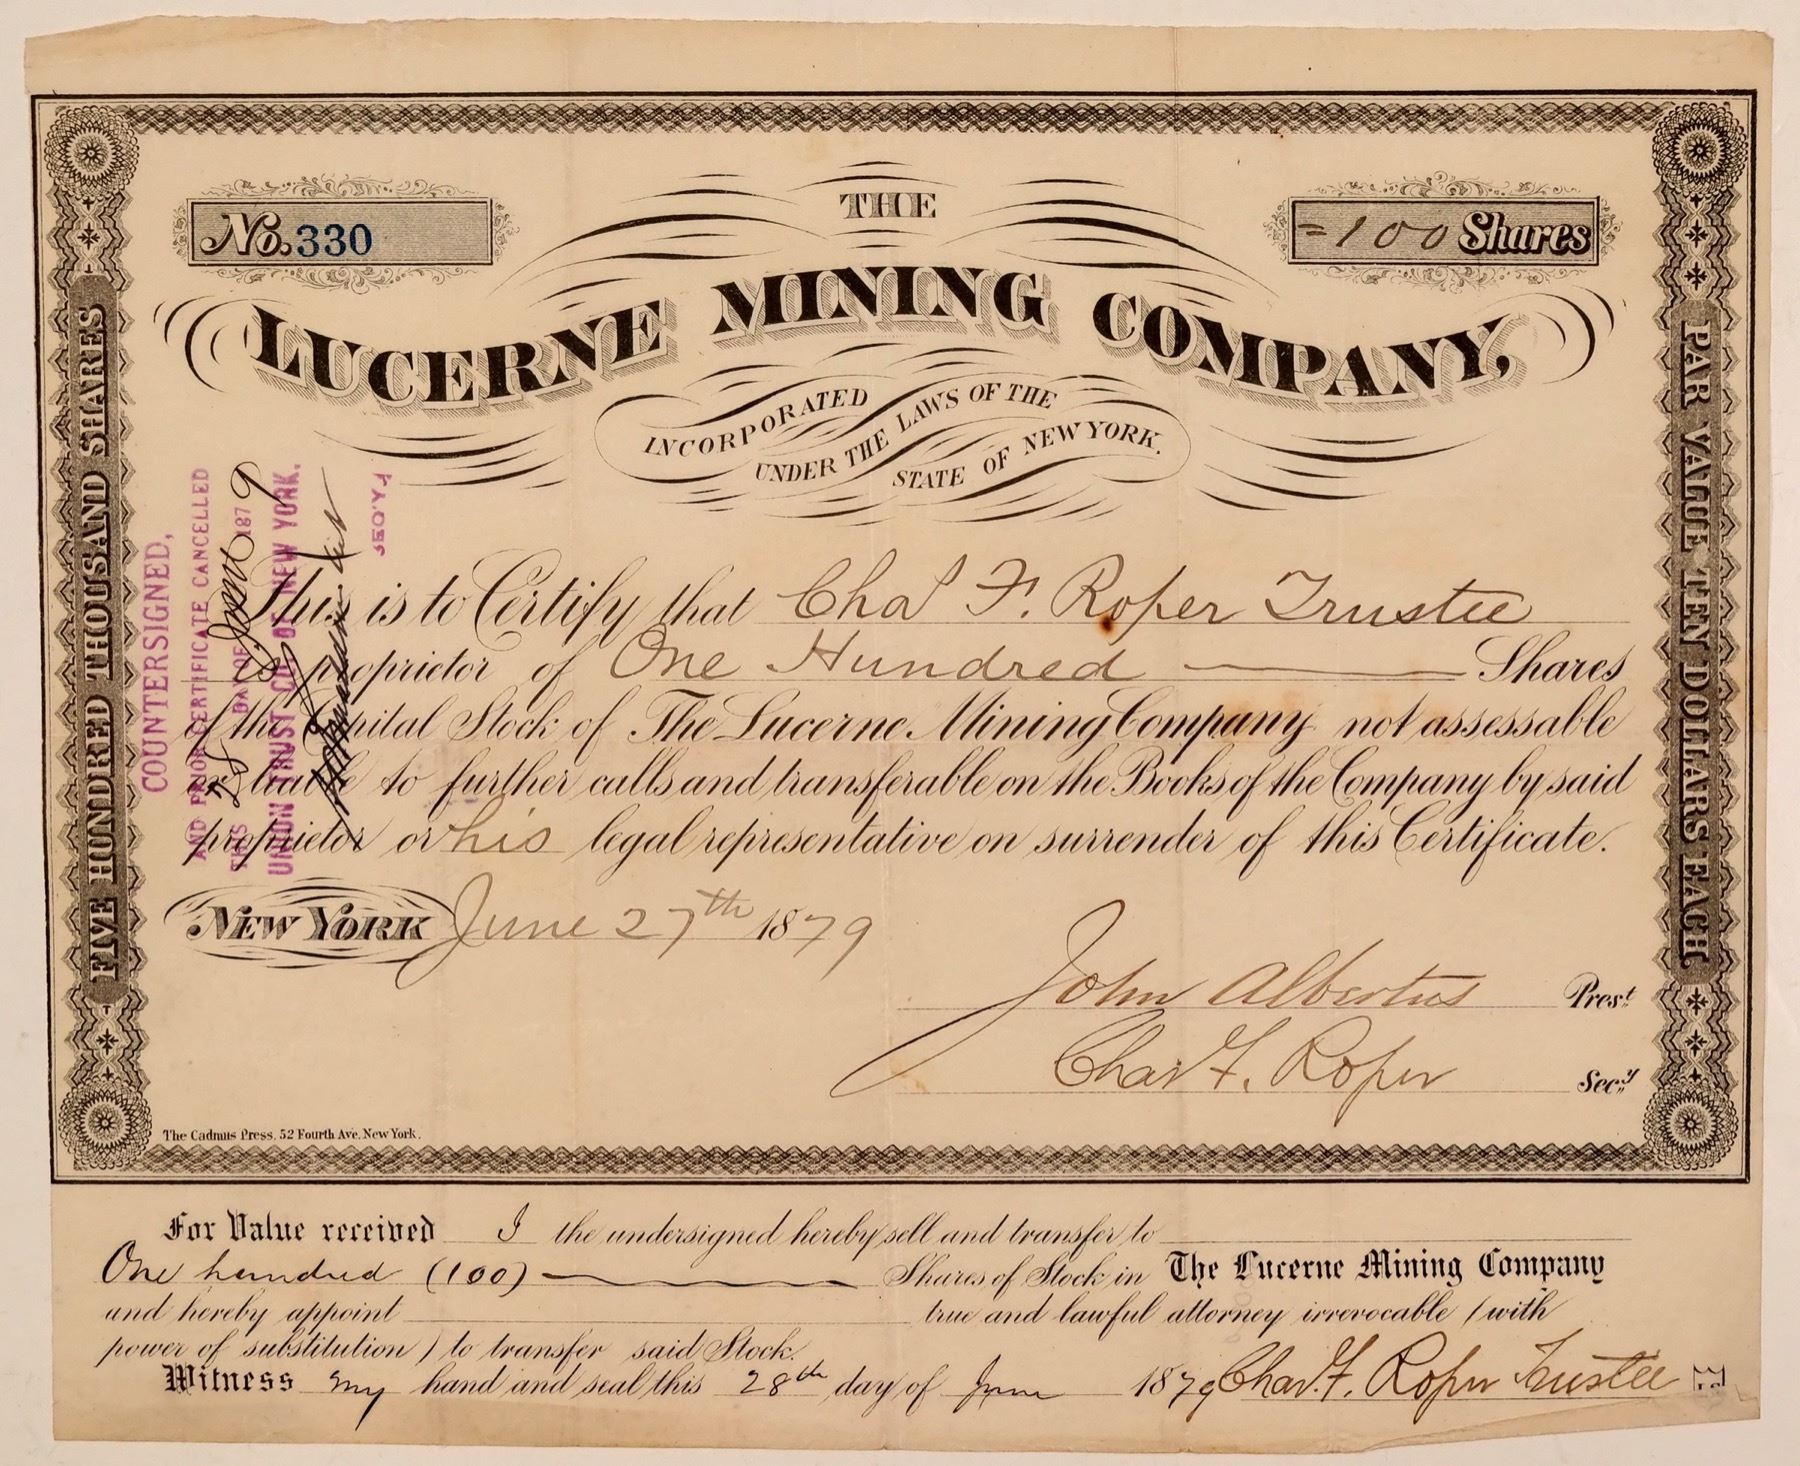 THE
No. 330
=100 Shares
LUCERNE MINING COMPANY,
INCORPORATED
UNDER THE LAWS OF THE
STATE OF NEW YORK.
FIVE HUNDRED THOUSAND SHARES
PAR VALUE TEN DOLLARS EACH
COUNTERSIGNED,
AND PRIOR CERTIFICATE CANCELLED
THIS 28 DAY OF June 1879
UNION TRUST CO. OF NEW YORK.
SEC'Y.
This is to Certify that Chas F. Roper Trustee
is proprietor of One Hundred Shares
of the Capital Stock of The Lucerne Mining Company not assessable
or liable to further calls and transferable on the Books of the Company by said
proprietor or his legal representative on surrender of this Certificate.
NEW YORK June 27th 1879
John Albertus Prest
Chas F. Roper Secy
The Cadmus Press, 52 Fourth Ave. New York.
For Value received I the undersigned hereby sell and transfer to
One hundred (100) Shares of Stock in The Lucerne Mining Company
and hereby appoint true and lawful attorney irrevocable (with
power of substitution) to transfer said Stock.
Witness my hand and seal this 28th day of June 1879 Chas. F. Roper Trustee